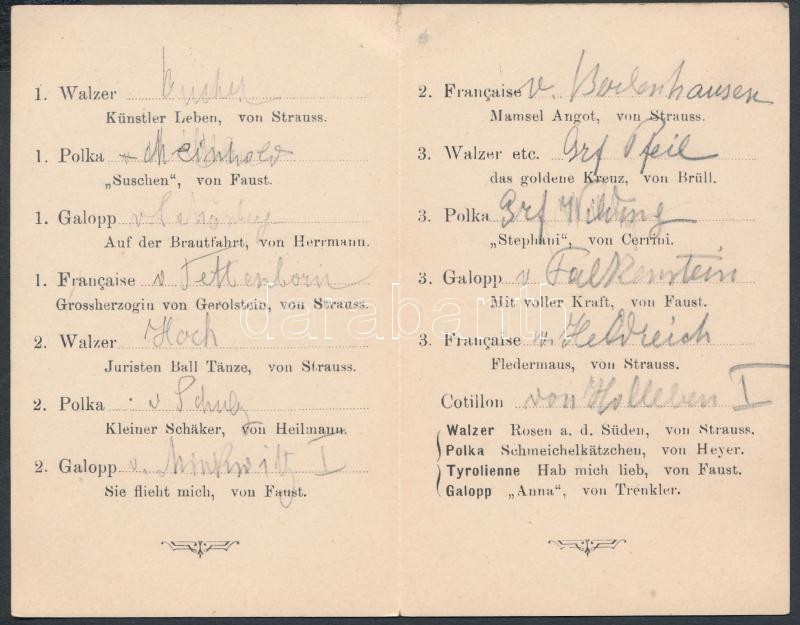 1. Walzer
Künstler Leben, von Strauss.
1. Polka Meinhold
„Suschen", von Faust.
1. Galopp v
Auf der Brautfahrt, von Herrmann.
1. Française v Tettenborn
Grossherzogin von Gerolstein, von Strauss.
2. Walzer Hoch
Juristen Ball Tänze, von Strauss.
2. Polka v Schulz
Kleiner Schäker, von Heilmann.
2. Galopp v. Minkwitz I
Sie flieht mich, von Faust.
2. Française v. Bodenhausen
Mamsel Angot, von Strauss.
3. Walzer etc. Grf Pfeil
das goldene Kreuz, von Brüll.
3. Polka Grf Wilding
„Stephani", von Cerrini.
3. Galopp v Falkenstein
Mit voller Kraft, von Faust.
3. Française v. Heldreich
Fledermaus, von Strauss.
Cotillon von Holleben I
Walzer Rosen a. d. Süden, von Strauss.
Polka Schmeichelkätzchen, von Heyer.
Tyrolienne Hab mich lieb, von Faust.
Galopp „Anna", von Trenkler.